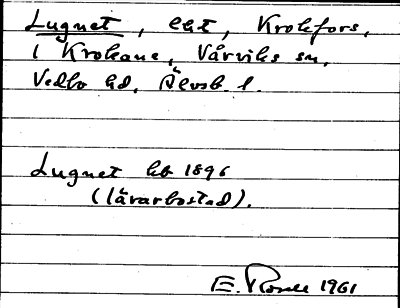 Lugnet, lht, Krokfors,
1 Krokane, Vårviks sn,
Vedbo hd, Älvsb. l.
Lugnet hb 1896
(lärarbostad).
E. 1961